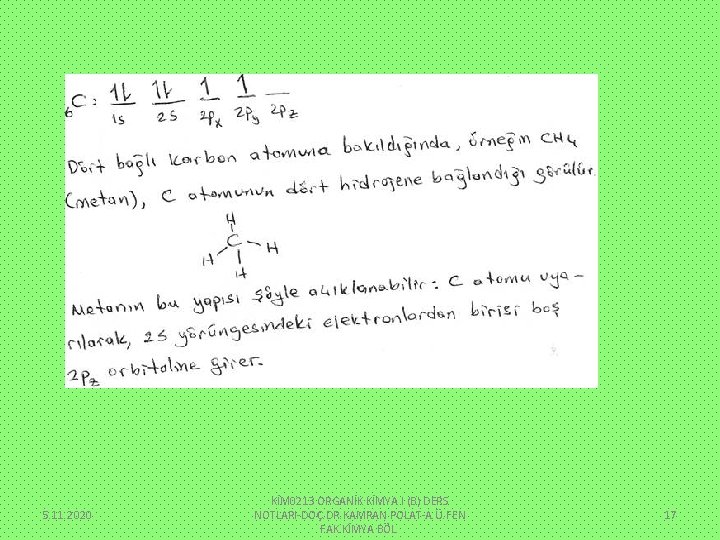 ₆C: 1l 1l 1 1 __
1s 2s 2pₓ 2py 2pz
Dört bağlı karbon atomuna bakıldığında, örneğin CH₄
(metan), C atomunun dört hidrojene bağlandığı görülür.
H
C H
H
H
Metanın bu yapısı şöyle açıklanabilir: C atomu uya-
rılarak, 2s yörüngesindeki elektronlardan birisi boş
2pz orbitaline girer.
5.11.2020
KİM0213 ORGANİK KİMYA I (B) DERS
NOTLARI-DOÇ.DR.KAMRAN POLAT-A.Ü.FEN
FAK.KİMYA BÖL
17